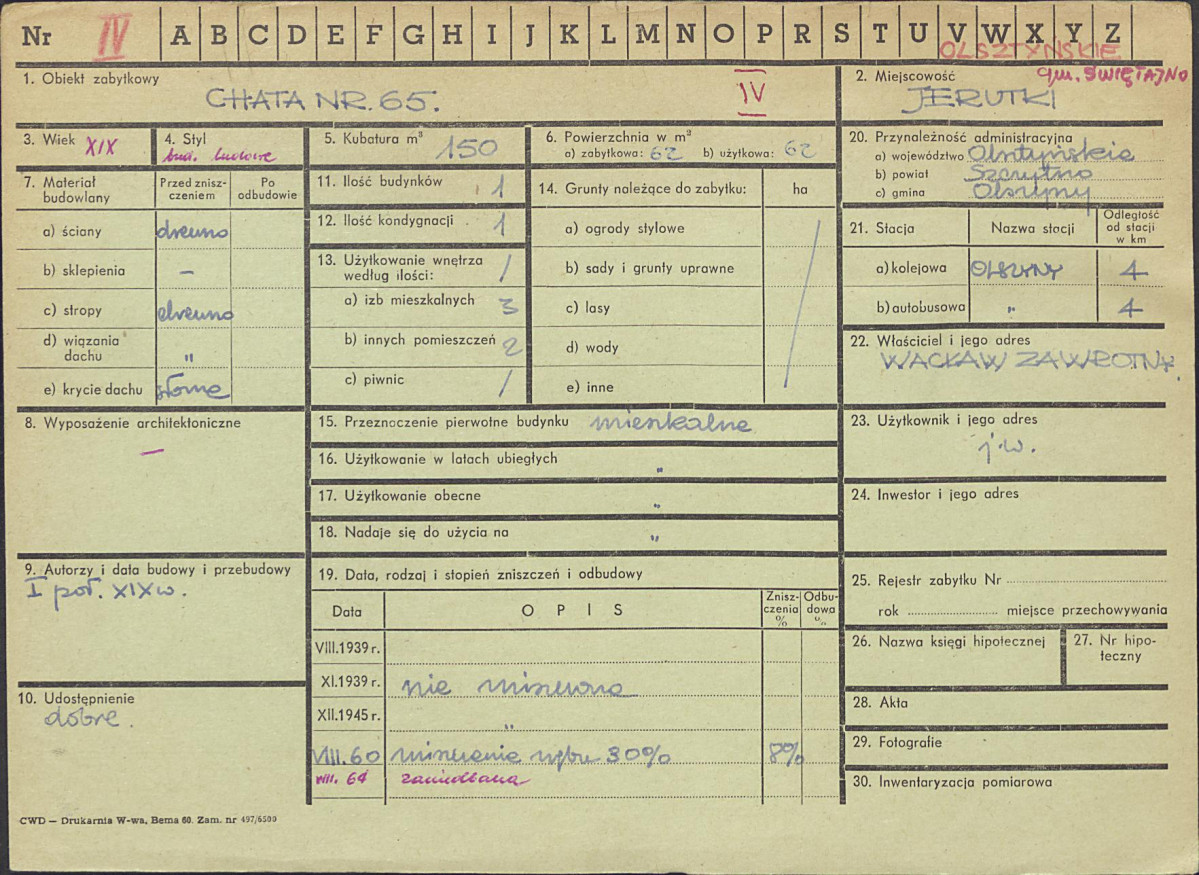 Nr IV A B C D E F G H I J K L M N O P R S T U V W X Y Z
OLSZTYŃSKIE
gm. ŚWIĘTAJNO
1. Obiekt zabytkowy
CHATA NR. 65.
IV
2. Miejscowość
JERUTKI
3. Wiek XIX
4. Styl
bud. ludowe
5. Kubatura m³ 150
6. Powierzchnia w m²
a) zabytkowa: 62 b) użytkowa: 62
20. Przynależność administracyjna
a) województwo Olsztyńskie
b) powiat Szczytno
c) gmina Olszyny
7. Materiał budowlany
Przed zniszczeniem
Po odbudowie
a) ściany drewno
b) sklepienia —
c) stropy drewno
d) wiązania dachu "
e) krycie dachu słoma
11. Ilość budynków 1
12. Ilość kondygnacji 1
13. Użytkowanie wnętrza według ilości: /
a) izb mieszkalnych 3
b) innych pomieszczeń 2
c) piwnic /
14. Grunty należące do zabytku: ha
a) ogrody stylowe
b) sady i grunty uprawne
c) lasy
d) wody
e) inne
21. Stacja
Nazwa stacji
Odległość od stacji w km
a) kolejowa OLSZYNY 4
b) autobusowa " 4
22. Właściciel i jego adres
WACŁAW ZAWROTNY.
8. Wyposażenie architektoniczne
—
15. Przeznaczenie pierwotne budynku mieszkalne
16. Użytkowanie w latach ubiegłych "
17. Użytkowanie obecne "
18. Nadaje się do użycia na "
23. Użytkownik i jego adres
j.w.
24. Inwestor i jego adres
9. Autorzy i data budowy i przebudowy
I poł. XIX w.
10. Udostępnienie
dobre.
19. Data, rodzaj i stopień zniszczeń i odbudowy
Data
OPIS
Zniszczenia %
Odbudowa %
VIII.1939 r.
XI.1939 r. nie
XII.1945 r. "
VIII. 60 30% 8%
VIII. 64 zaniedbana
25. Rejestr zabytku Nr
rok miejsce przechowywania
26. Nazwa księgi hipotecznej
27. Nr hipoteczny
28. Akta
29. Fotografie
30. Inwentaryzacja pomiarowa
CWD — Drukarnia W-wa, Bema 60. Zam. nr 497/6500